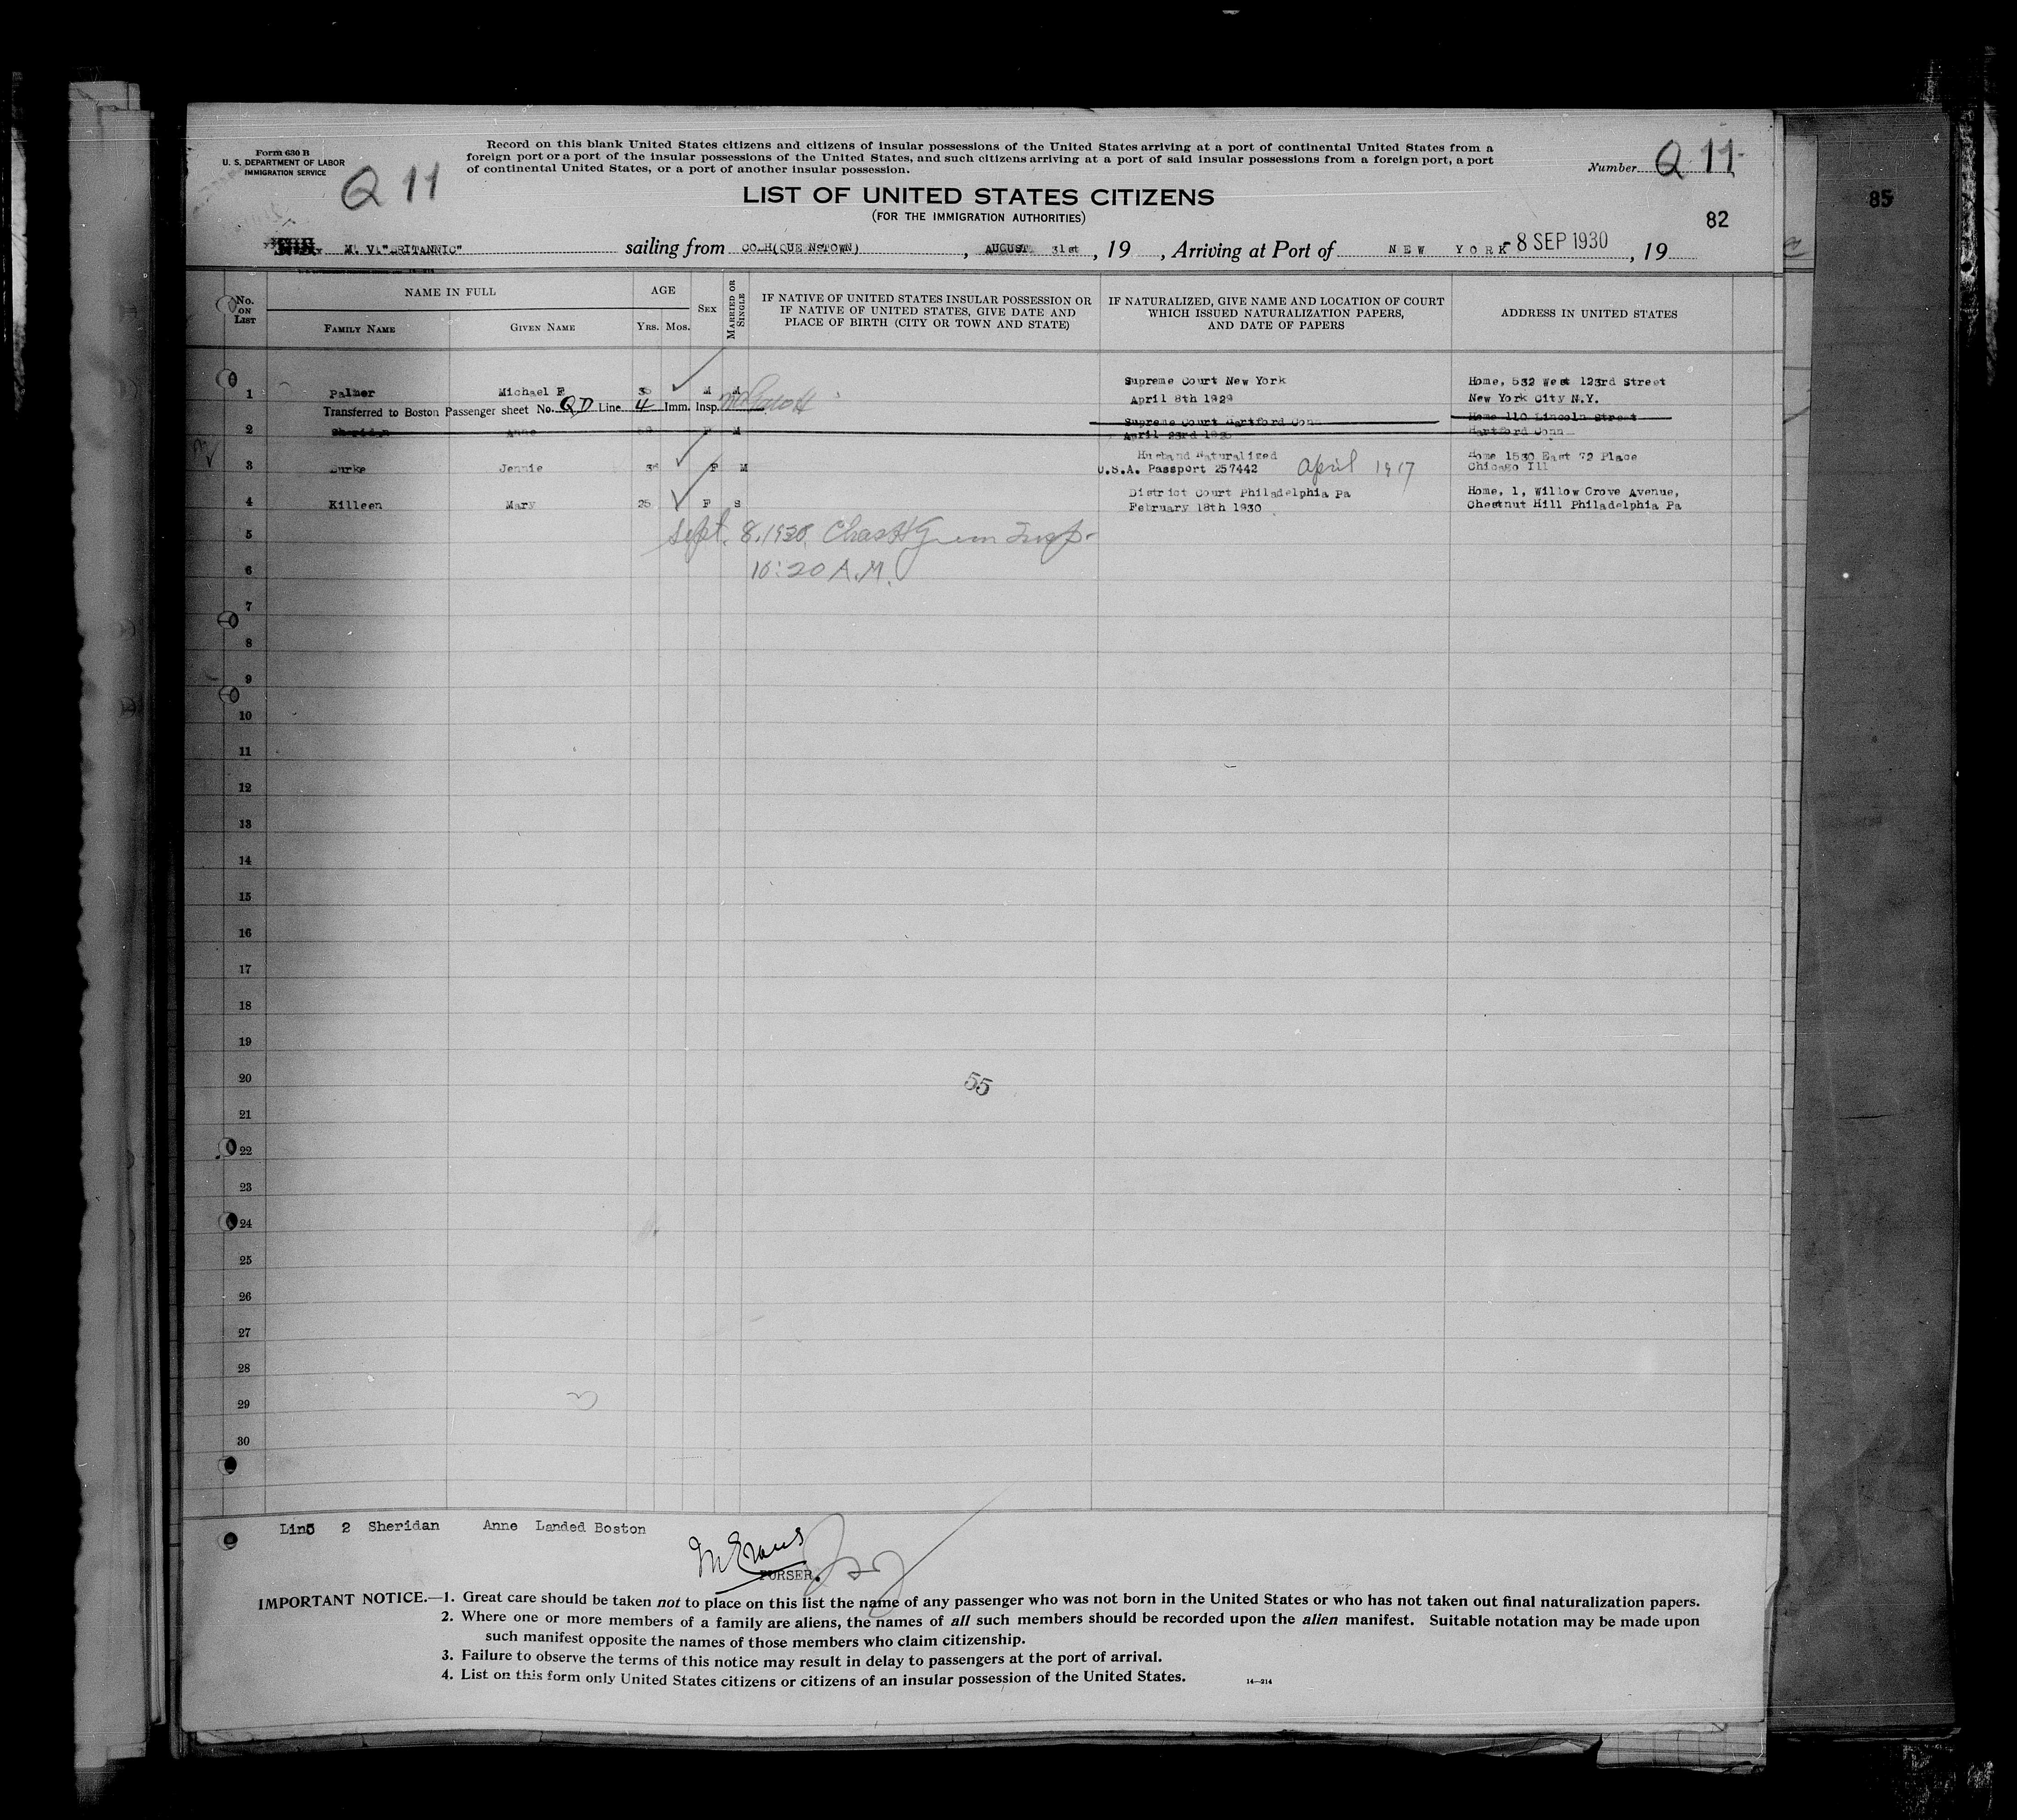 Form 630 B
U. S. DEPARTMENT OF LABOR
IMMIGRATION SERVICE
Q 11
Record on this blank United States citizens and citizens of insular possessions of the United States arriving at a port of continental United States from a
foreign port or a port of the insular possessions of the United States, and such citizens arriving at a port of said insular possessions from a foreign port, a port
of continental United States, or a port of another insular possession.
Number Q 11
LIST OF UNITED STATES CITIZENS
(FOR THE IMMIGRATION AUTHORITIES)
82
85
M. V. "BRITANNIC" sailing from COBH(QUEENSTOWN), AUGUST 31st, 19 , Arriving at Port of NEW YORK -8 SEP 1930, 19
No. ON LIST
NAME IN FULL
FAMILY NAME GIVEN NAME
AGE
YRS. MOS.
SEX
MARRIED OR SINGLE
IF NATIVE OF UNITED STATES INSULAR POSSESSION OR
IF NATIVE OF UNITED STATES, GIVE DATE AND
PLACE OF BIRTH (CITY OR TOWN AND STATE)
IF NATURALIZED, GIVE NAME AND LOCATION OF COURT
WHICH ISSUED NATURALIZATION PAPERS,
AND DATE OF PAPERS
ADDRESS IN UNITED STATES
Supreme Court New York Home, 532 West 123rd Street
1 Palmer Michael F M M April 8th 1929 New York City N.Y.
Transferred to Boston Passenger sheet No. QD Line 4 Imm. Insp.
Supreme Court Hartford Conn Home 110 Lincoln Street
2 Sheridan Anne F M April 23rd Hartford Conn
Husband Naturalized Home 1530 East 72 Place
3 Burke Jennie F M U.S.A. Passport 257442 April 1917 Chicago Ill
District Court Philadelphia Pa Home, 1, Willow Grove Avenue,
4 Killeen Mary 25 F S February 18th 1930 Chestnut Hill Philadelphia Pa
5 Sept. 8. 1930 Chas H Insp.
6 10:20 A.M.
7
8
9
10
11
12
13
14
15
16
17
18
19
20
55
21
22
23
24
25
26
27
28
29
30
Line 2 Sheridan Anne Landed Boston
M Evans
PURSER.
IMPORTANT NOTICE.—1. Great care should be taken not to place on this list the name of any passenger who was not born in the United States or who has not taken out final naturalization papers.
2. Where one or more members of a family are aliens, the names of all such members should be recorded upon the alien manifest. Suitable notation may be made upon
such manifest opposite the names of those members who claim citizenship.
3. Failure to observe the terms of this notice may result in delay to passengers at the port of arrival.
4. List on this form only United States citizens or citizens of an insular possession of the United States.
14—214